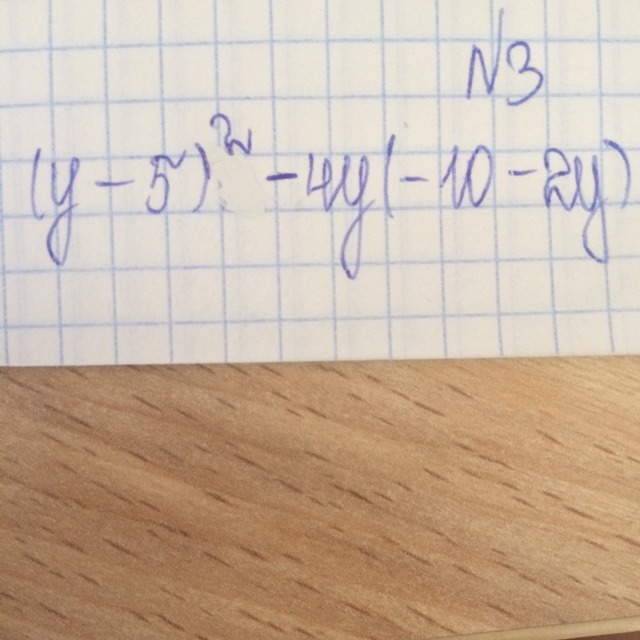 N3
(y - 5)² - 4y(-10 - 2y)